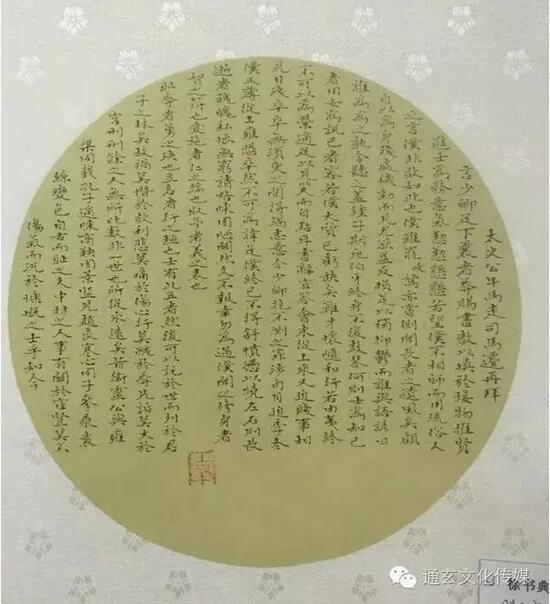 太史公牛馬走司馬遷再拜
言少卿足下曩者辱賜書教以慎於接物推賢
進士為務意氣懃懃懇懇若望僕不相師而用流俗人
之言僕非敢如此也僕雖罷駑亦嘗側聞長者之遺風矣顧
自以為身殘處穢動而見尤欲益反損是以獨抑鬱而誰與語諺曰
誰為為之孰令聽之蓋鍾子期死伯牙終身不復鼓琴何則士為知己
者用女為說己者容若僕大質已虧缺矣雖才懷隨和行若由夷終
不可以為榮適足以見笑而自點耳書辭宜答會東從上來又迫賤事相
見日淺卒卒無須臾之間得竭志意今少卿抱不測之罪涉旬月迫季冬
僕又薄從上雍恐卒然不可為諱是僕終已不得舒憤懣以曉左右則長
逝者魂魄私恨無窮請略陳固陋闕然久不報幸勿為過僕聞之修身者
智之符也愛施者仁之端也取予者義之表也
恥辱者勇之決也立名者行之極也士有此五者然後可以託於世而列於君
子之林矣故禍莫憯於欲利悲莫痛於傷心行莫醜於辱先詬莫大於
宮刑刑餘之人無所比數非一世也所從來遠矣昔衛靈公與雍
渠同載孔子適陳商鞅因景監見趙良寒心同子參乘袁
絲變色自古而恥之夫中材之人事有關於宦豎莫不
傷氣而況於慷慨之士乎如今
通玄文化传媒
徐书典